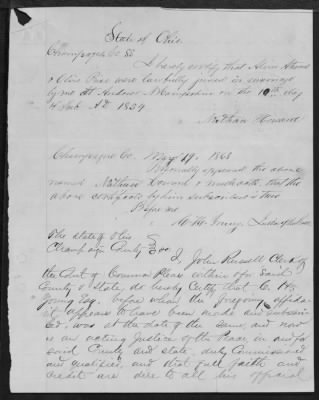 State of Ohio
Champaign Co. SS
I hereby certify that Alvin
& Olive were lawfully joined in marriage
by me at on the 10th day
of AD 1839
Nathan Howard
Champaign Co. May 19, 1868
Personally appeared the above
named Nathan Howard & made oath, that the
above certificate by him subscribed is true
Before me
The State of Ohio
Champaign County SS
I, John Russell Clerk of
the Court of Common Pleas within & for said
County & State, do hereby Certify that C. H.
Young Esq. before whom the foregoing affidav-
it appears to have been made and subscri-
bed, was at the date of the same, and now
is an acting Justice of the Peace, in and for
said County and State, duly Commissioned
and qualified, and that full faith and
credit are due to all his official